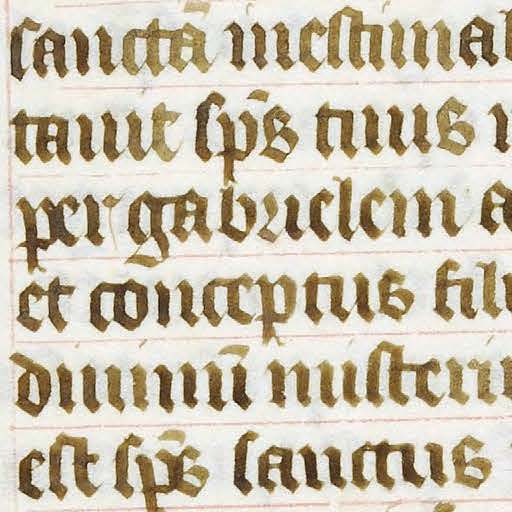 sanctā inestimal
tauit sp̄s tuus
per gabrielem a
et conceptus fili
diuinū misteri
est sp̄s sanctus